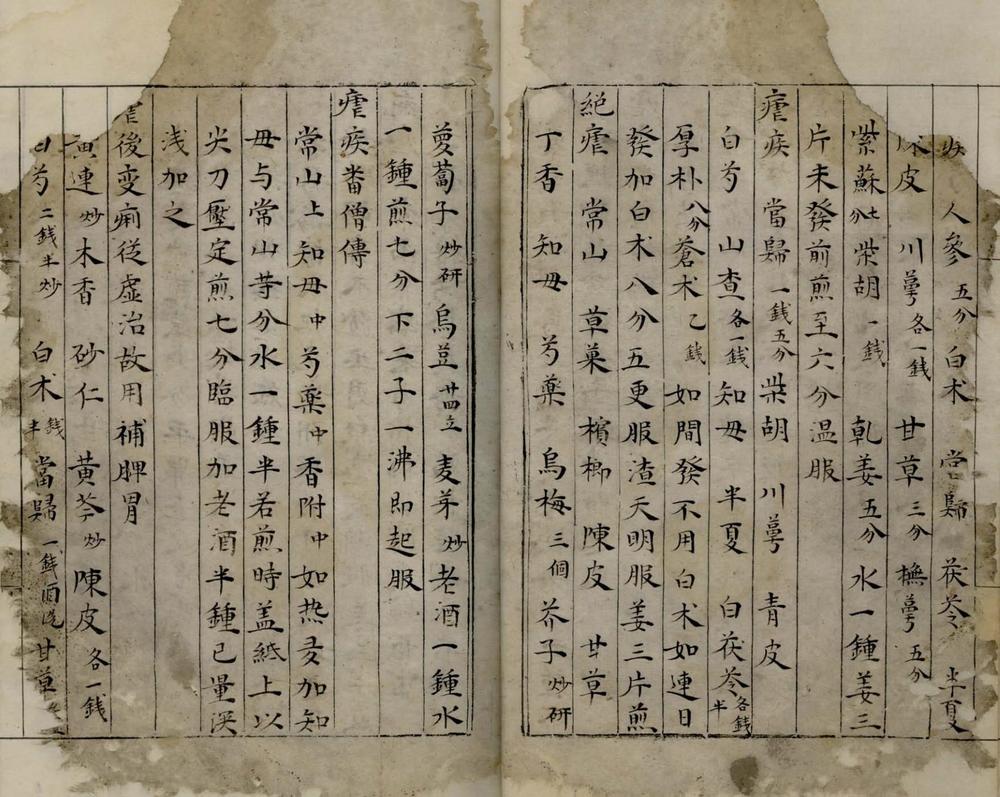 疾 人參五分 白术 當歸 茯苓 半夏
陳皮 川芎各一錢 甘草三分 撫芎五分
紫蘇七分 柴胡一錢 乹姜五分 水一鍾姜三
片未發前煎至六分温服
瘧疾 當歸一錢五分 柴胡 川芎 青皮
白芍 山查各一錢 知母 半夏 白茯苓各錢半
厚朴八分 蒼术乙錢 如間發不用白术如連日
發加白术八分五更服渣天明服姜三片煎
絕瘧 常山 草菓 檳榔 陳皮 甘草
丁香 知母 芍藥 烏梅三個 芥子炒研
蔓蔔子炒研 烏荳廿四立 麦芽炒 老酒一鍾水
一鍾煎七分下二子一沸即起服
瘧疾畨僧傳
常山上 知母中 芍藥中 香附中 如热麦加知
毋与常山等分水一鍾半若煎時盖紙上以
尖刀壓定煎七分臨服加老酒半鍾已量深
浅加之
後变痢従虚治故用補脾胃
黄連炒 木香 砂仁 黄芩炒 陳皮各一錢
白芍二錢半炒 白术錢半 當歸一錢酒洗 甘草